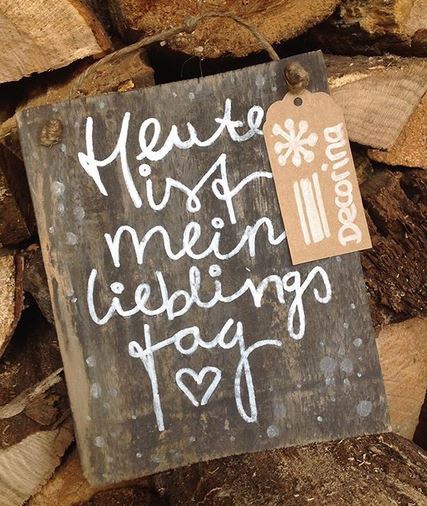 Heute
ist
mein
lieblings
tag
Decoring